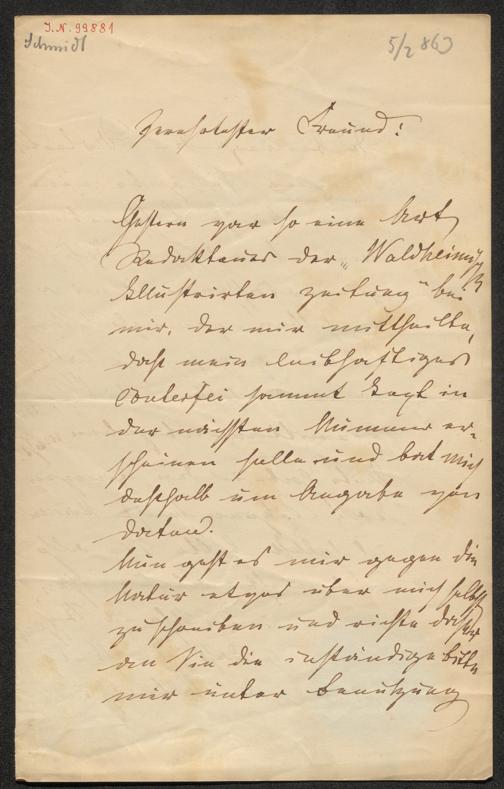 J.N. 99881
Schmidt
5/2 863
Verehrtester Freund!
Gestern war so eine Art
Redakteur der „Waldheim's
Illustrirten Zeitung" bei
mir, der mir mittheilte,
daß mein leibhaftiges
Conterfei sammt Text in
der nächsten Nummer er-
scheinen solle und bat mich
deßhalb um Angabe von
Daten.
Nun geht es mir gegen die
Natur etwas über mich selbst
zu schreiben und richte daher
an Sie die inständige Bitte
mir unter Benützung